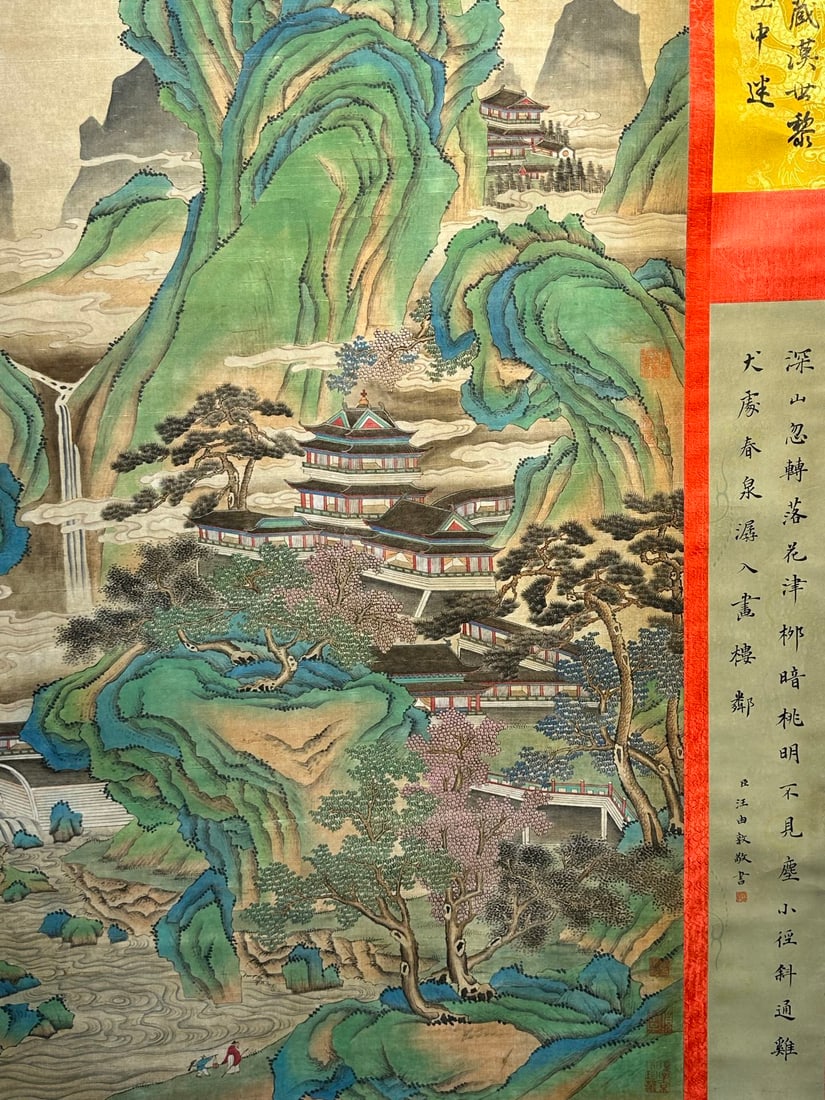 藏漢世黎
中迷
深山忽轉落花津柳暗桃明不見塵小徑斜通雞
犬處春泉潺入畫樓鄰
臣汪由敦敬書